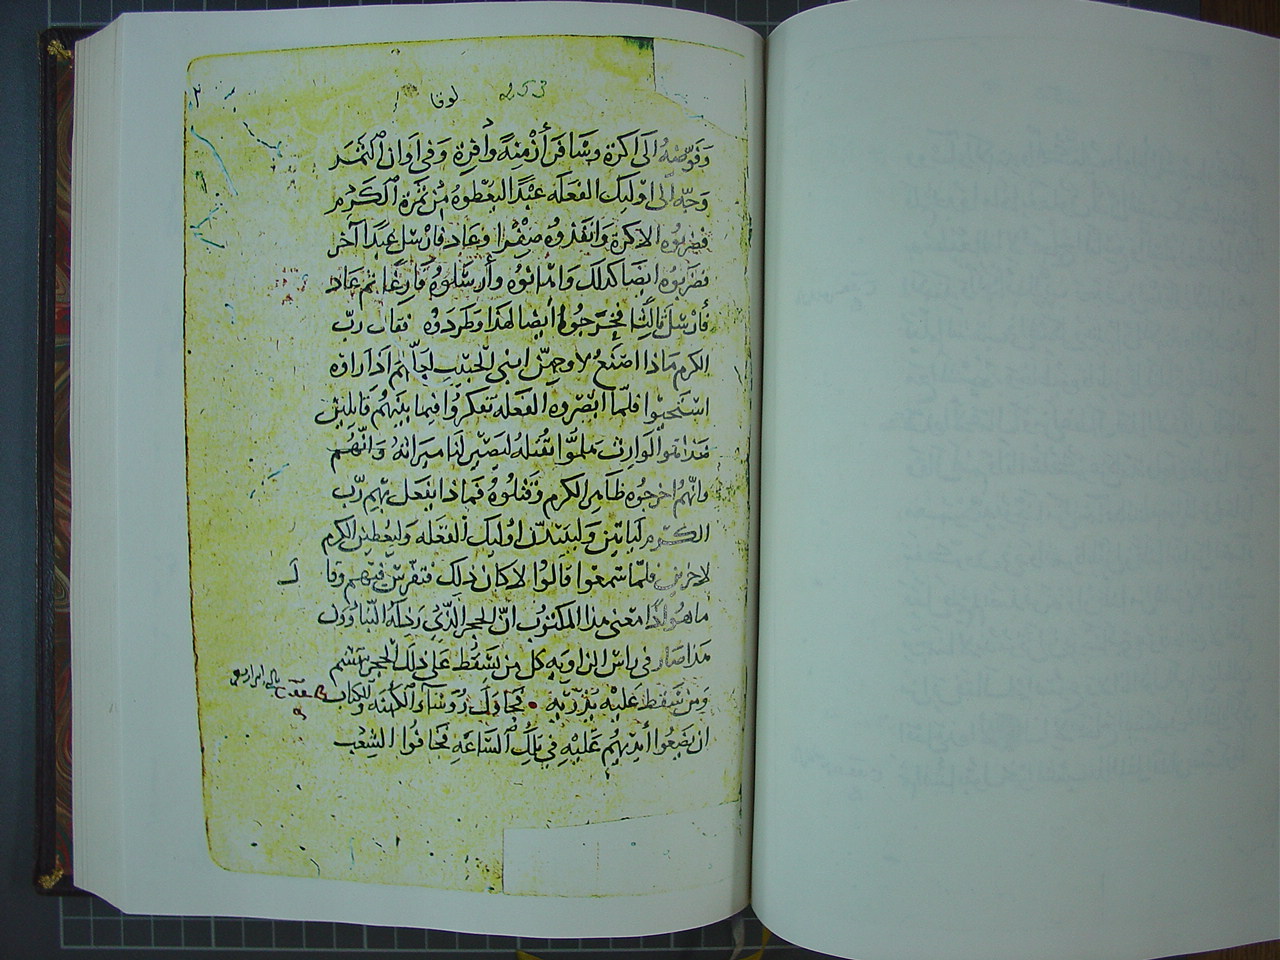 لوقا 253
وَفَوّضهُ الَى اكرة وسَافَر أزْمِنِةً وافِرة وَفى اوَان الثمَر
وَجّه الى اوليك الفعَله عبْدًا ليعْطوهُ مِن ثمَرَة الكَرْم
فضربُوه الاكرة وَانفَدوُه صِفْرا وعَاد فارْسَل عبدًا آخر
فضرَبوُه ايضا كدلك وَاهَانوُه وأرسَلوهُ فَارِغًا ثم عَاد
فأرْسَل ثالثًا فجَرحوا ايضا لهَذا وَطَردَوه فقال ربّ
الكرم مَاذا اصْنَعُ لاوجّهنّ ابنى الحَبيْب لعَلّهمْ اذا راوه
اسْتحيوا فلمّا ابْصَروه الفَعَله تفكروُا فيما بينَهُم قايلين
هَذا هو الوَارث هَلموُّا نقتله ليَصيْر لنا ميرَاثهُ وَانّهُم
وانّهمُ اخرَجُوه ظاهر الكرم وَقتلوُهُ فمَاذا يفعَل بهِم رَبّ
الكَرْم ليَاتين وَليبيدنّ اوليك الفعَله وَليُعطين الكرم
لاخرين فلمّا سمعوا قالوُا لا كان ذلك فتفرّس فيهم وقا ل
ما هوُ اذًا معنى هذا المكتوُب انّ الحجر الّذى رَذلهُ البنّاوُون
هَذا صَار فى راس الزاويه كل من سَقط عَلى ذلك الحجر يتهشم
وَمن سَقط عَليْه يذرّيْه • فحَاول رُوسَاء الكهَنه وَالكتاب
ان يضعُوا أيديهُم عَليهِ في تلك السَّاعَهِ فخافُوا الشعْب